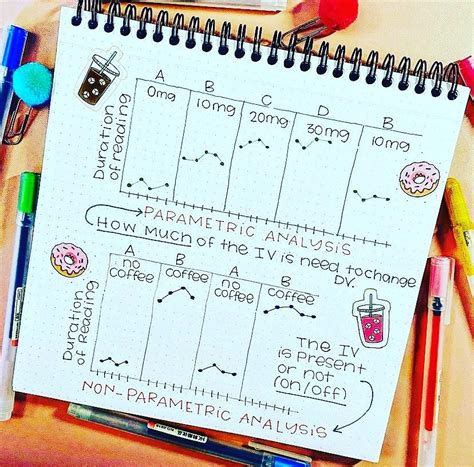 A B C D B
0mg 10mg 20mg 30mg 10mg
Duration
of reading
PARAMETRIC ANALYSIS
HOW MUCH OF the IV is need to change
DV.
A B A B
no coffee no coffee
coffee coffee
Duration
of Reading
The IV
is Present
or not
(on/off)
NON-PARAMETRIC ANALYSIS